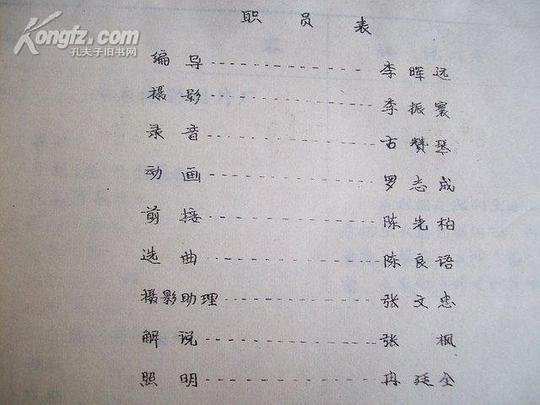 Kongfz.com
孔夫子旧书网
职 员 表
编 导---------------李晖远
摄 影---------------李振寰
录 音---------------古赞琴
动 画---------------罗志成
剪 接---------------陈先柏
选 曲---------------陈良语
摄影助理---------------张文忠
解 说---------------张 枫
照 明---------------冉廷全